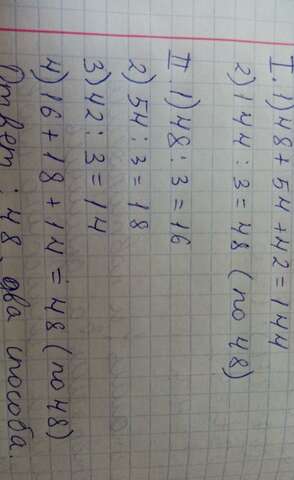 I. 1) 48 + 54 + 42 = 144
2) 144 : 3 = 48 (по 48)
II 1) 48 : 3 = 16
2) 54 : 3 = 18
3) 42 : 3 = 14
4) 16 + 18 + 14 = 48 (по 48)
Ответ: 48, два способа.